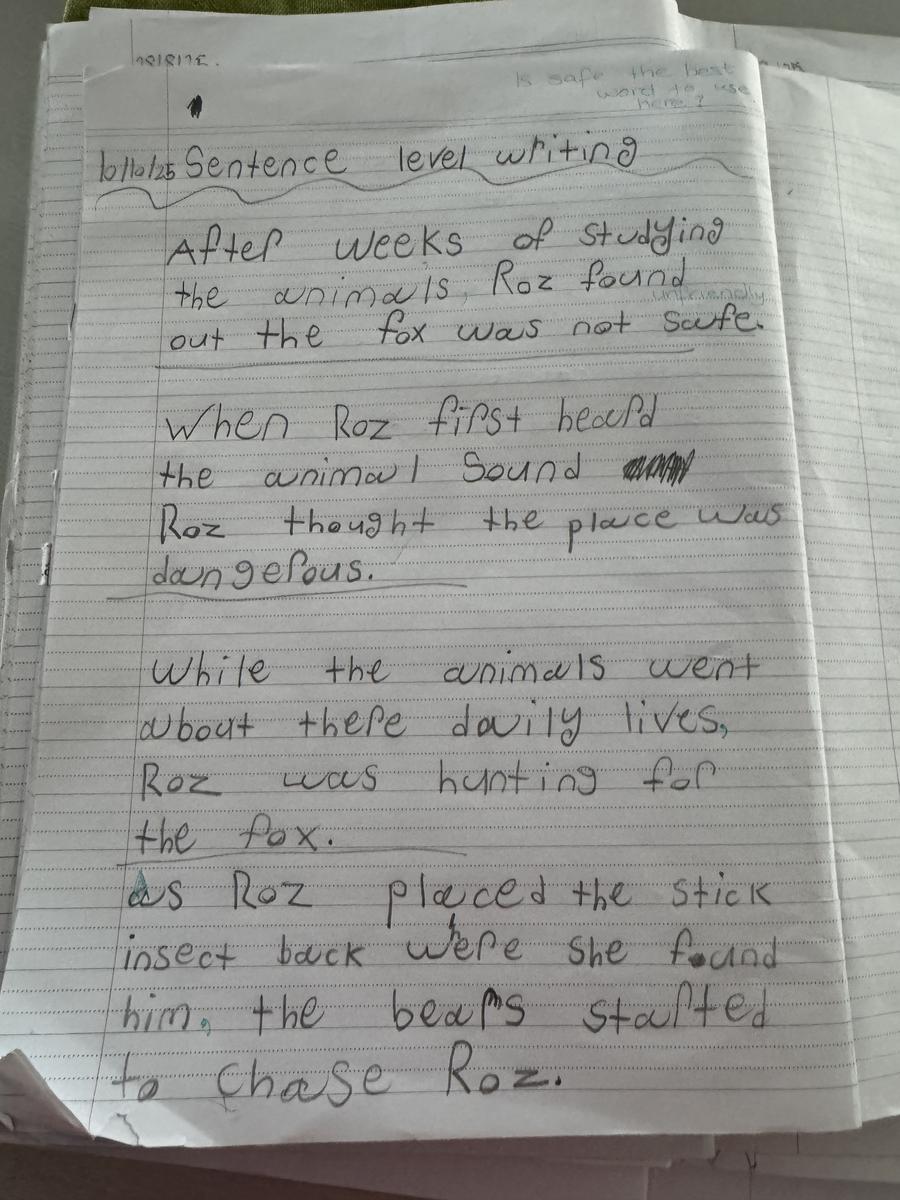 Is safe the best
word to use
here?
10/10/25 Sentence level writing
After weeks of studying
the animals, Roz found
unfriendly
out the fox was not safe.
When Roz first heard
the animal sound
Roz thought the place was
dangerous.
While the animals went
about there daily lives,
Roz was hunting for
the fox.
As Roz placed the stick
insect back where she found
him, the bears started
to chase Roz.